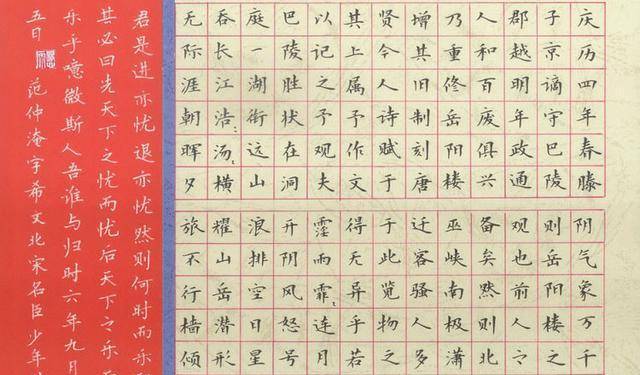 庆历四年春滕
子京谪守巴陵
郡越明年政通
人和百废俱兴
乃重修岳阳楼
增其旧制刻唐
贤今人诗赋于
其上属予作文
以记之予观夫
巴陵胜状在洞
庭一湖衔远山
吞长江浩汤横
无际涯朝晖夕
阴气象万千
则岳阳楼之
观也前人之
备矣然则北
巫峡南极潇
迁客骚人多
于此览物之
得无异乎若
霪雨霏连月
开阴风怒号
浪排空日星
耀山岳潜形
旅不行樯倾
君是进亦忧退亦忧然则何时而乐
其必曰先天下之忧而忧后天下之乐
乐乎噫微斯人吾谁与归时六年九月
五日 范仲淹字希文北宋名臣少年